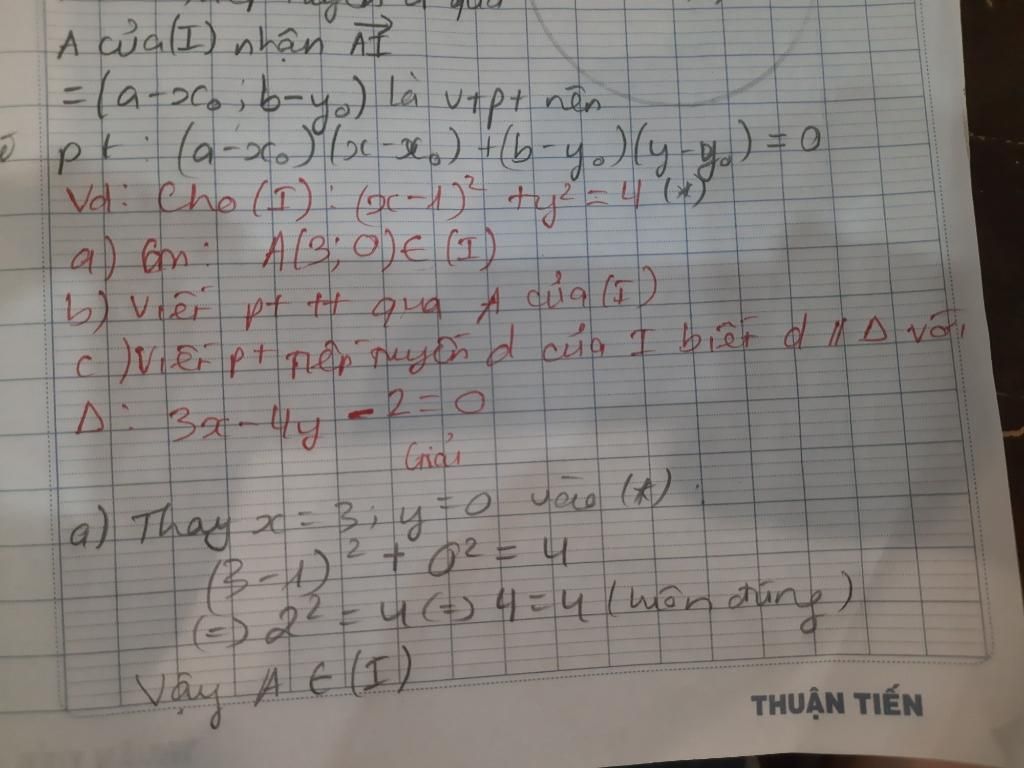 A của (I) nhận AI
= (a-x₀; b-y₀) là vtpt nên
pt: (a-x₀)(x-x₀)+(b-y₀)(y-y₀) = 0
Vd: Cho (I): (x-1)² + y² = 4 (*)
a) Cm: A(3; 0) ∈ (I)
b) Viết pt tt qua A của (I)
c) Viết pt tiếp tuyến d của I biết d // Δ với
Δ: 3x - 4y - 2 = 0
Giải
a) Thay x = 3; y = 0 vào (*):
(3-1)² + 0² = 4
(=) 2² = 4 (=) 4 = 4 (luôn đúng)
Vậy A ∈ (I)
THUẬN TIẾN